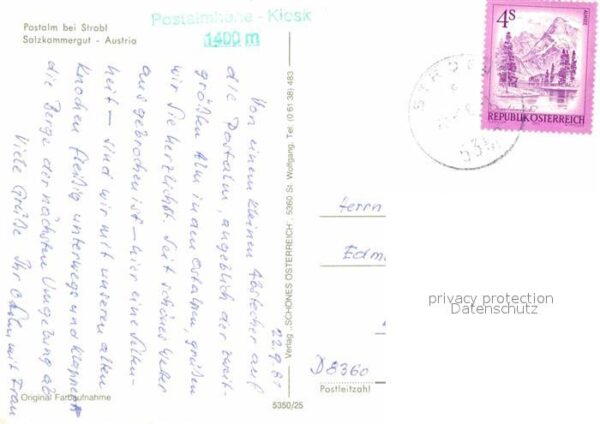 Postalm bei Strobl
Salzkammergut - Austria
Postalmhöhe - Kiosk
1400 m
22.9.81
Von einem kleinen Abstecher auf
die Postalm, angeblich der zweit-
größten Alm in den Ostalpen, grüßen
wir Sie herzlichst. Seit schönes Wetter
ausgebrochen ist – hier eine Selten-
heit – sind wir mit unseren alten
Knochen fleißig unterwegs und klappern
die Berge der nächsten Umgebung ab
Viele Grüße Ihr mit Frau
Original Farbaufnahme
Verlag „SCHÖNES ÖSTERREICH", 5360 St. Wolfgang, Tel. (0 61 38) 483
5350/25
4S
REPUBLIK ÖSTERREICH
STROBL
Herrn
Edm
D8360
Postleitzahl
privacy protection
Datenschutz